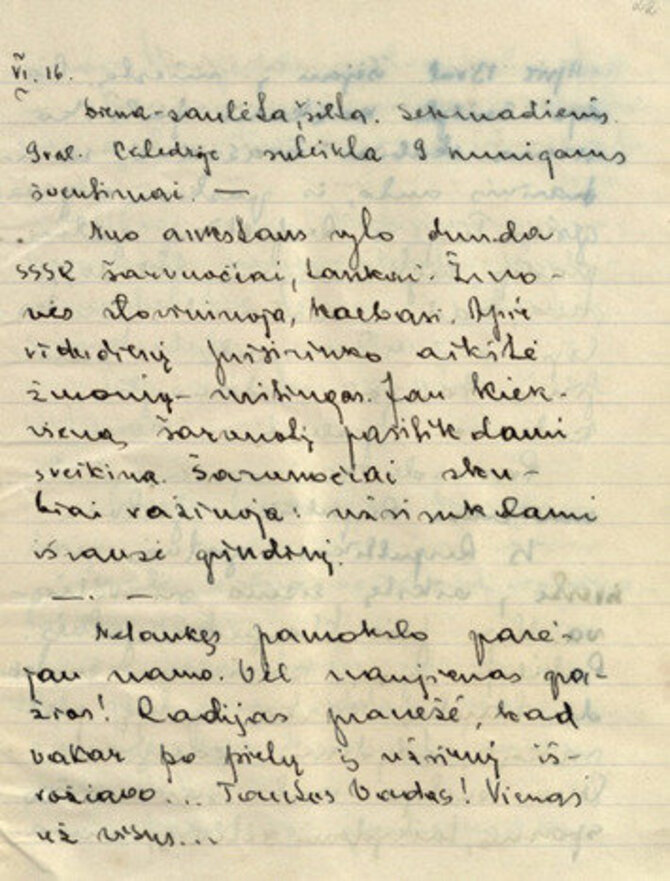 VI. 16.
Diena-saulėta, šilta. Sekmadienis.
Katedroje suteikta 9 kunigams
šventimai. —
Nuo ankstaus ryto dunda
SSSR šarvuočiai, tankai. Žmo-
nės stoviniuoja, kalbasi. Apie
vidudienį prisirinko aikštė
žmonių – mitingas. Jau kiek-
vieną šarvuotį pasitikdami
sveikina. Šarvuočiai sku-
biai važinoja: užsisukdami
išrausė grindinį.
— . —
Nelaukęs pamokslo parė-
jau namo. Vėl naujienas pa-
žėros! Radijas pranešė, kad
vakar po pietų į užsienį iš-
važiavo... Tautos Vadas! Vienas
už visus...